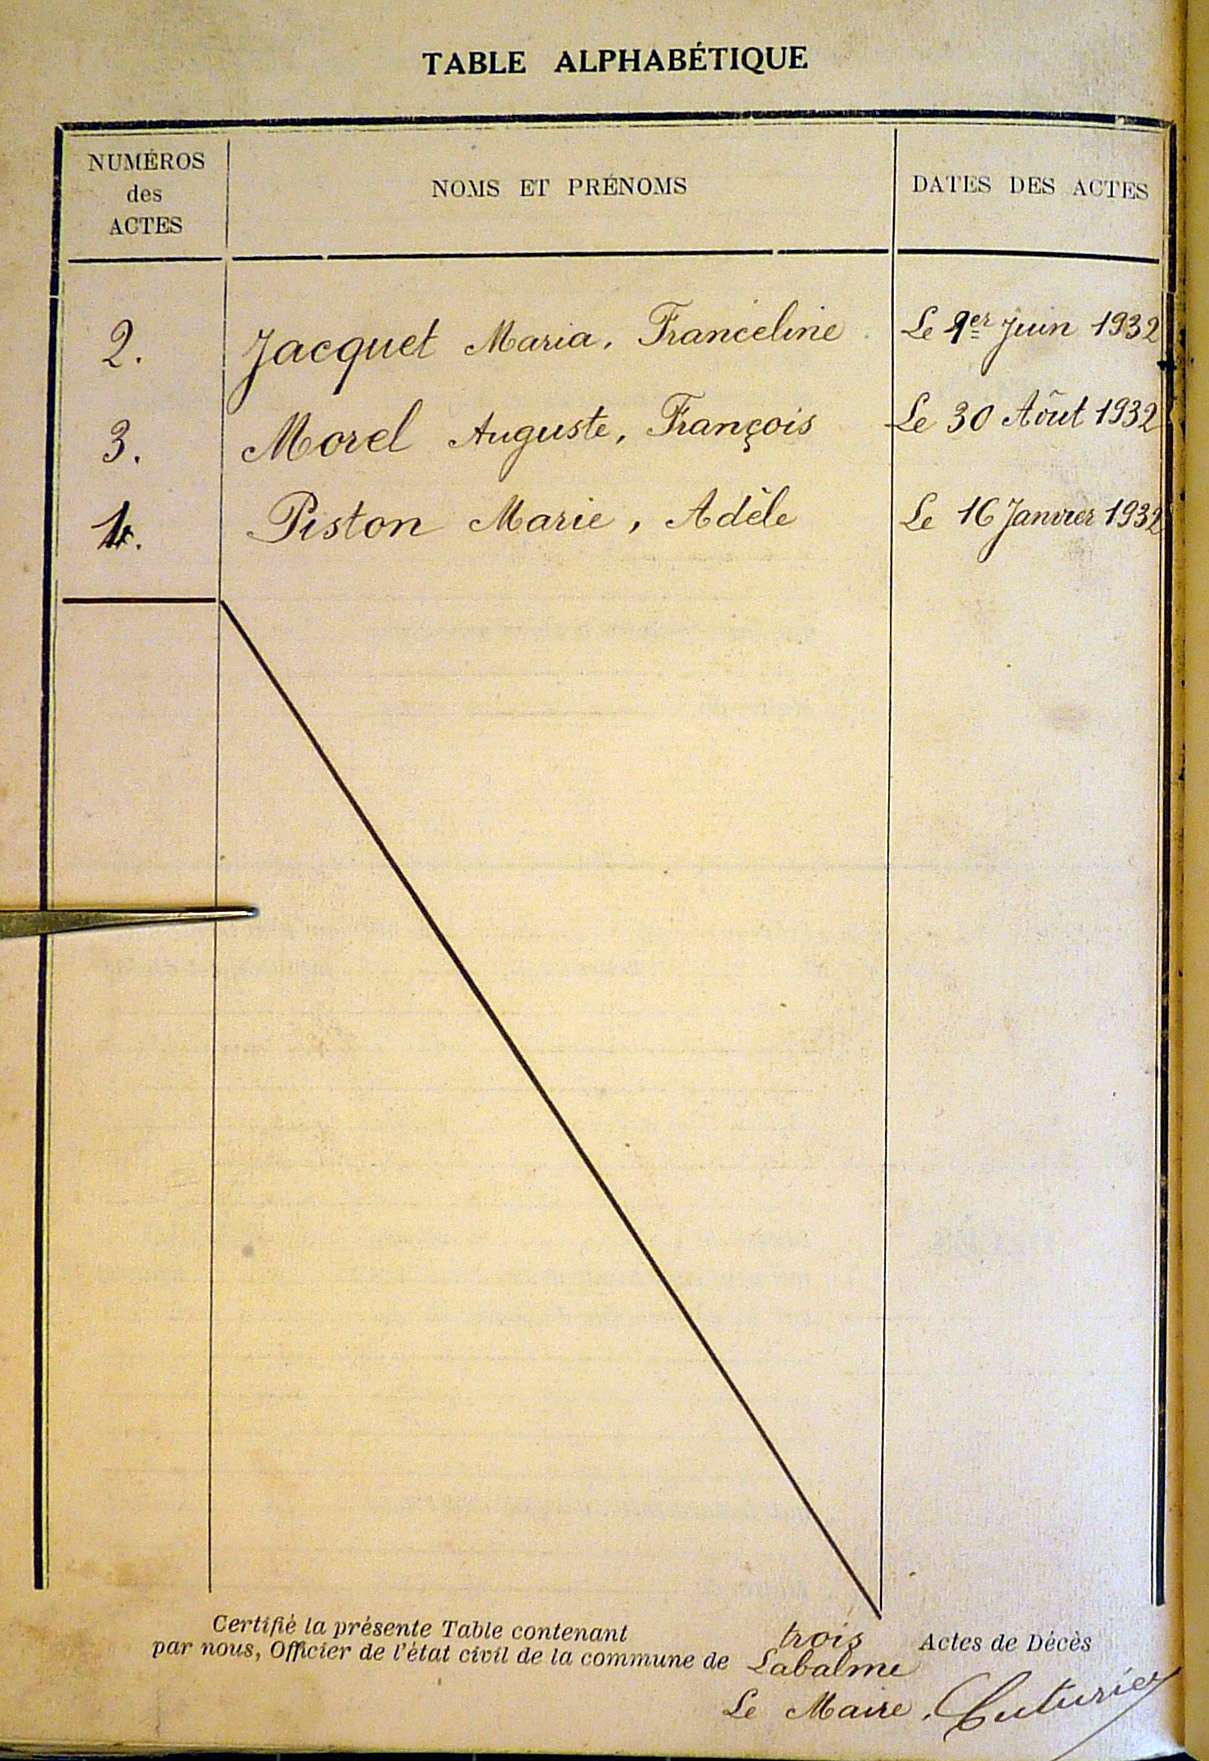 TABLE ALPHABÉTIQUE
NUMÉROS
des
ACTES
NOMS ET PRÉNOMS
DATES DES ACTES
2. Jacquet Maria, Franceline Le 1er Juin 1932
3. Morel Auguste, François Le 30 Août 1932
1. Piston Marie, Adèle Le 16 Janvier 1932
Certifié la présente Table contenant trois Actes de Décès
par nous, Officier de l'état civil de la commune de Labalme
Le Maire, Cuturier